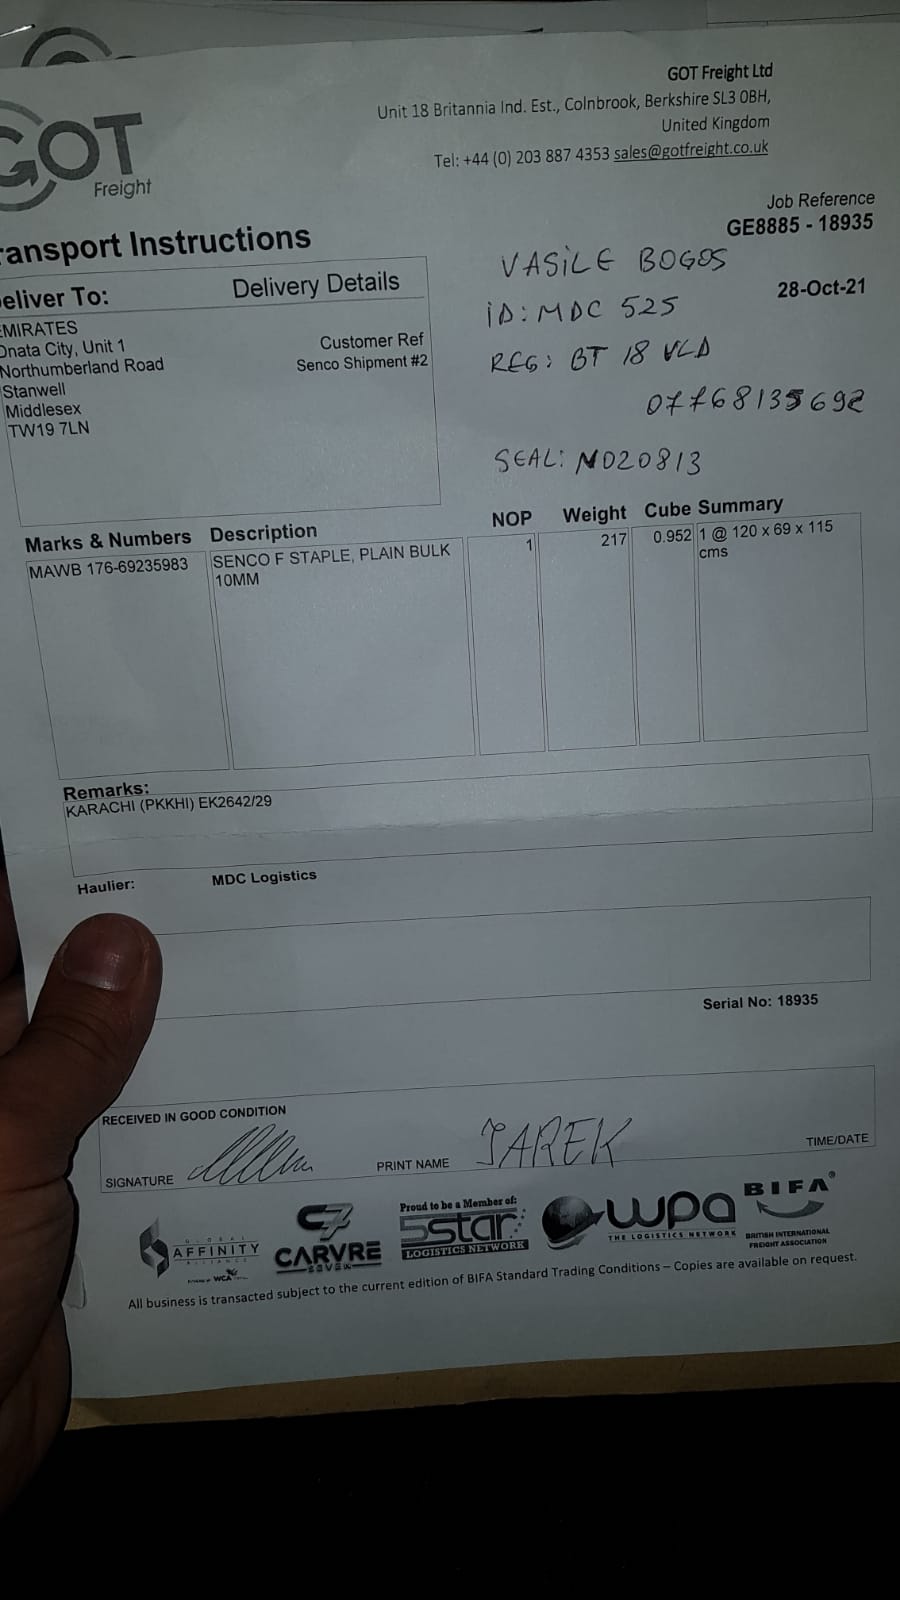 GOT Freight Ltd
Unit 18 Britannia Ind. Est., Colnbrook, Berkshire SL3 0BH,
United Kingdom
Tel: +44 (0) 203 887 4353 sales@gotfreight.co.uk
GOT
Freight
Job Reference
GE8885 - 18935
ransport Instructions
28-Oct-21
VASILE BOGOS
ID: MDC 525
REG: BT 18 VLD
07768135692
SEAL: N020813
eliver To: Delivery Details
EMIRATES
Dnata City, Unit 1
Northumberland Road
Stanwell
Middlesex
TW19 7LN
Customer Ref
Senco Shipment #2
Marks & Numbers Description NOP Weight Cube Summary
MAWB 176-69235983 SENCO F STAPLE, PLAIN BULK 1 217 0.952 1 @ 120 x 69 x 115
10MM cms
Remarks:
KARACHI (PKKHI) EK2642/29
Haulier: MDC Logistics
Serial No: 18935
RECEIVED IN GOOD CONDITION
SIGNATURE PRINT NAME JAREK TIME/DATE
GLOBAL
AFFINITY
ALLIANCE
WCA
C7
CARVRE
SEVEN
Proud to be a Member of:
5star
LOGISTICS NETWORK
wpa
THE LOGISTICS NETWORK
BIFA®
BRITISH INTERNATIONAL
FREIGHT ASSOCIATION
All business is transacted subject to the current edition of BIFA Standard Trading Conditions – Copies are available on request.